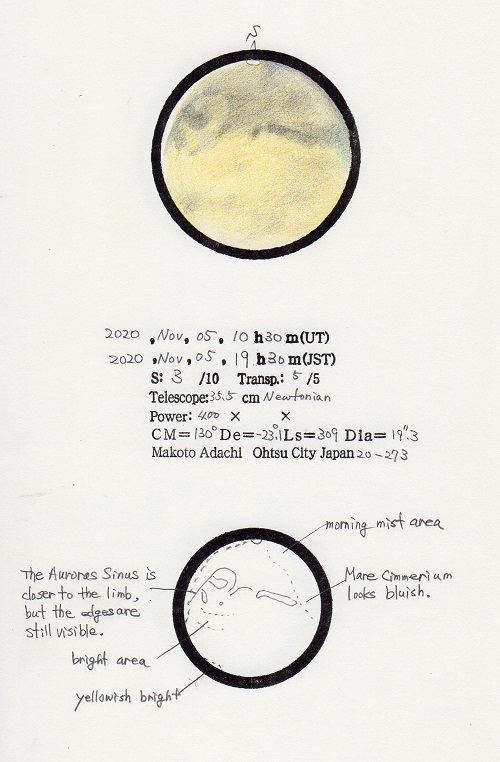 S
2020 , Nov, 05, 10 h 30 m(UT)
2020 , Nov, 05, 19 h 30 m(JST)
S: 3 /10 Transp.: 5 /5
Telescope: 35.5 cm Newtonian
Power: 400 × ×
CM= 130° De= -23.1° Ls= 309 Dia= 19".3
Makoto Adachi Ohtsu City Japan 20-273
morning mist area
The Auroras Sinus is
closer to the limb,
but the edges are
still visible.
Mare Cimmerium
looks bluish.
bright area
yellowish bright